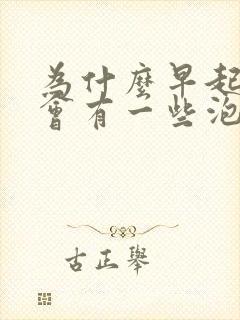 為什麼早起
會有一些泡
古正舉